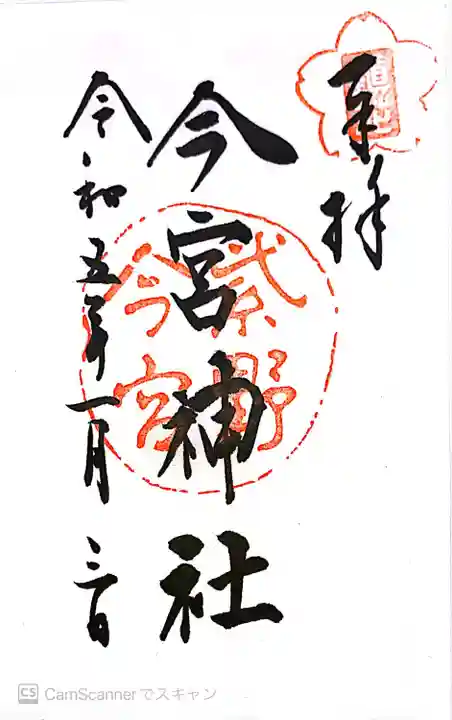 奉拝
今宮神社
紫野
今宮
令和五年一月三日
CS CamScannerでスキャン